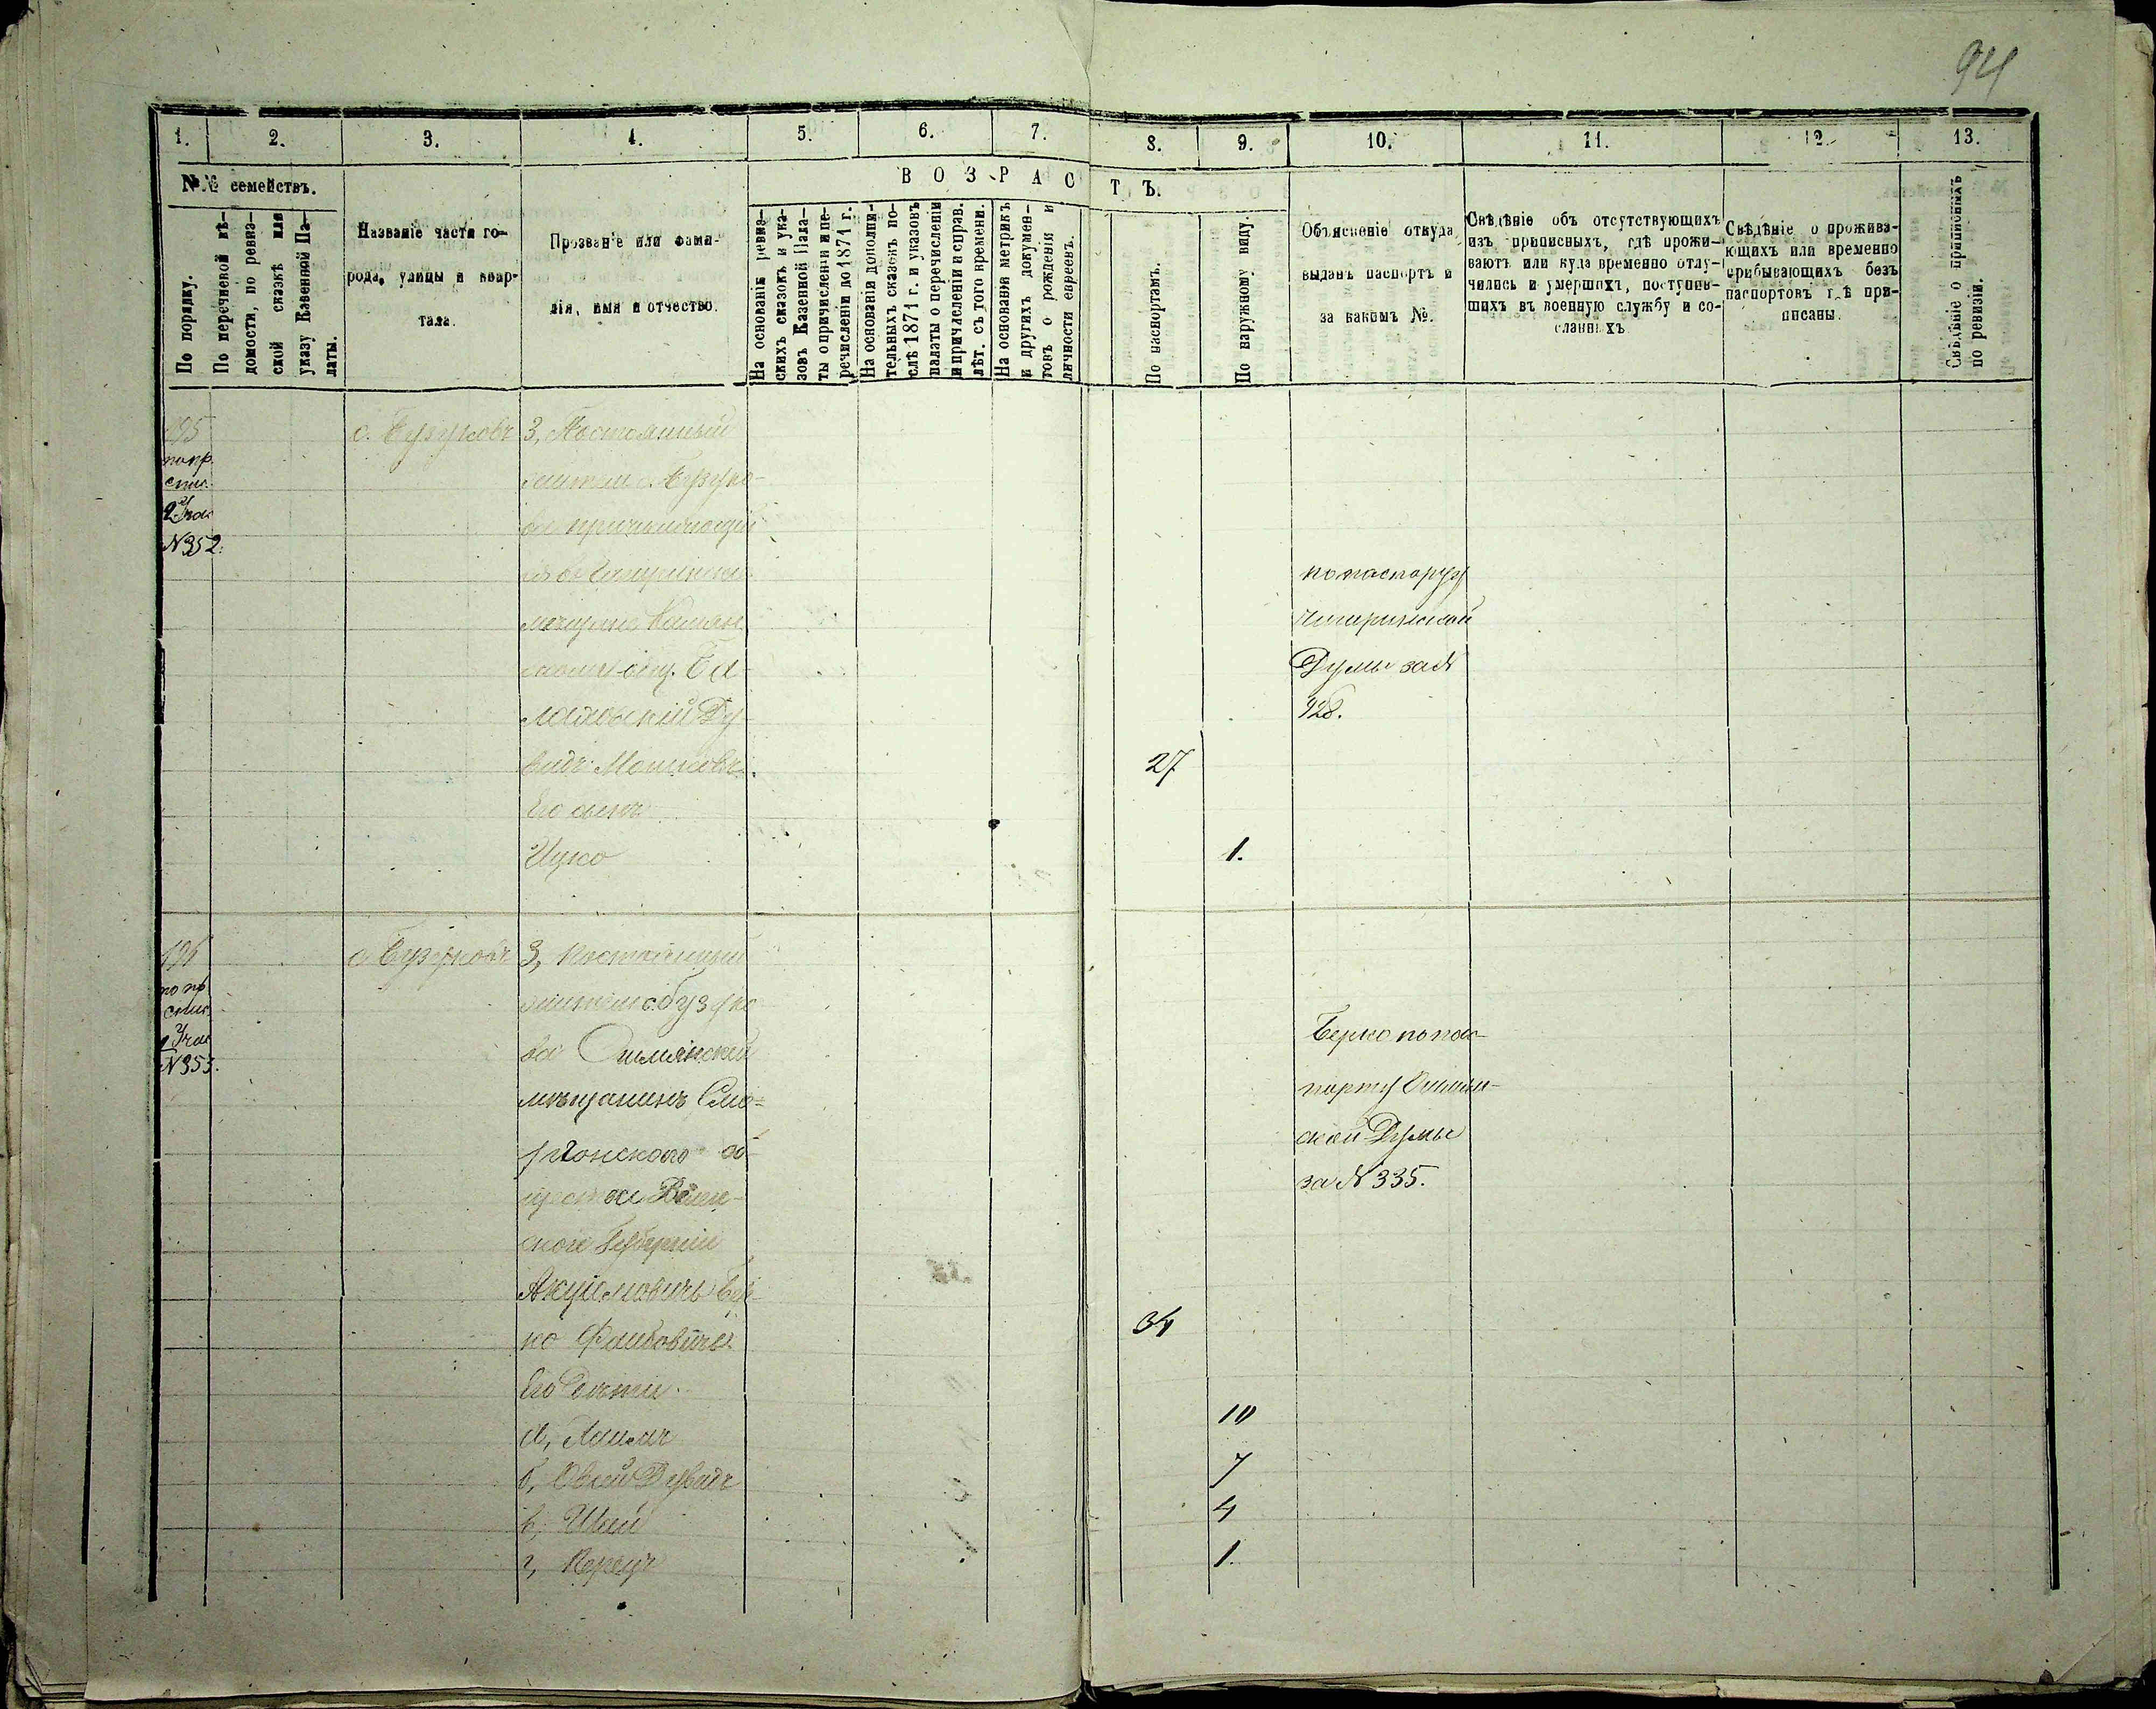 94
1. 2. 3. 4. 5. 6. 7. 8. 9. 10. 11. 12. 13.
№№ семействъ.
ВОЗРАСТЪ.
По порядку.
По перечневой вѣ-
домости, по ревиз-
ской сказкѣ или
указу Казенной Па-
латы.
Названіе части го-
рода, улицы и квар-
тала.
Прозваніе или фами-
лія, имя и отчество.
На основаніи ревиз-
скихъ сказокъ и ука-
зовъ Казенной Пала-
ты о причисленіи и пе-
речисленіи до 1871 г.
На основаніи дополни-
тельныхъ сказокъ по-
слѣ 1871 г. и указовъ
палаты о перечисленіи
и причисленіи и справ.
лѣт. съ того времени.
На основаніи метрикъ
и другихъ докумен-
товъ о рожденіи и
личности евреевъ.
По паспортамъ.
По наружному виду.
Объясненіе откуда
выданъ паспортъ и
за какимъ №.
Свѣдѣніе объ отсутствующихъ
изъ приписныхъ, гдѣ прожи-
ваютъ или куда временно отлу-
чились и умершихъ, поступив-
шихъ въ военную службу и со-
сланныхъ
Свѣдѣніе о прожива-
ющихъ или временно
прибывающихъ безъ
паспортовъ гдѣ при-
писаны.
Свѣдѣніе о приписныхъ
по ревизіи.
195
по пр.
спис.
2 Учас
№352.
с. Бузуковъ
3, Постоянный
житель с. Бузуко-
мѣщанъ
Ду-
видъ Мошковъ.
27
Его сынъ
Ицко
1.
по паспорту
Чигиринской
Думы за №
928.
196
по пр
спис.
2 Учас
№353.
с. Бузуковъ
3, Постоянный
житель с. Бузуко
ва Ошмянскій
мѣщанинъ Смо-
ргонскаго об-
щества Вилен-
ской Губерніи
Бер-
ко Файбовичъ.
34
Его Дети.
а,
10
б, Овсей Дувидъ
7
в, Шай
4
г, Перецъ
1.
Берко по пас-
порту Ошмян-
ской Думы
за №335.